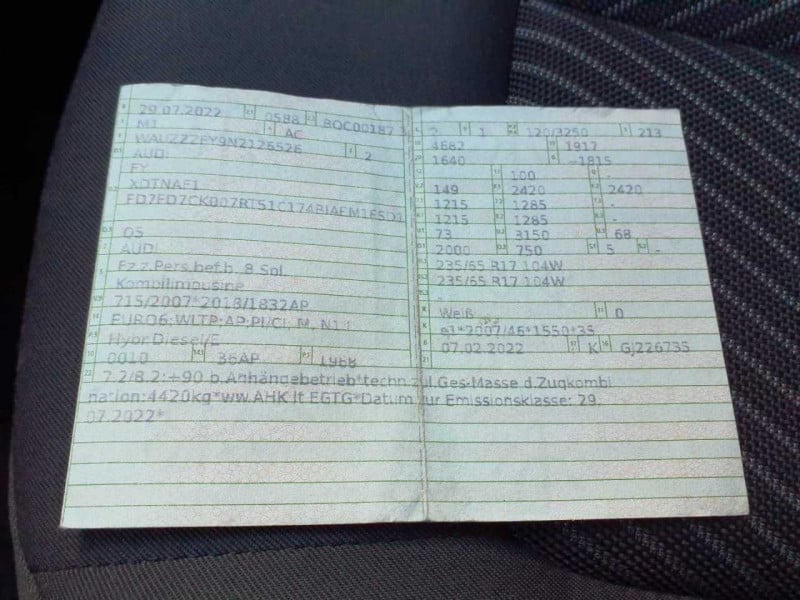 29.07.2022 0588 BQC00187
M1 AC
WAUZZZFY9N2126526 2
AUDI
FY
XDTNAF1
05
AUDI
Fz.z.Pers.bef.b. 8 Spl.
Kombilimousine
715/2007*2018/1832AP
EURO6;WLTP;AP;PI/CI; M, N1 I
Hybr.Diesel/E
0010 36AP 1968
2 1 120/3250 213
4682 1917
1640 -1815
100 -
149 2420 2420
1215 1285 -
1215 1285 -
73 3150 68
2000 750 5 -
235/65 R17 104W
235/65 R17 104W
-
Weiß 0
e1*2007/46*1550*35
07.02.2022 K GJ226735
7.2/8.2:+90 b.Anhängebetrieb*techn.zul.Ges-Masse d.Zugkombi
nation:4420kg*ww.AHK lt.EGTG*Datum zur Emissionsklasse: 29.
07.2022*